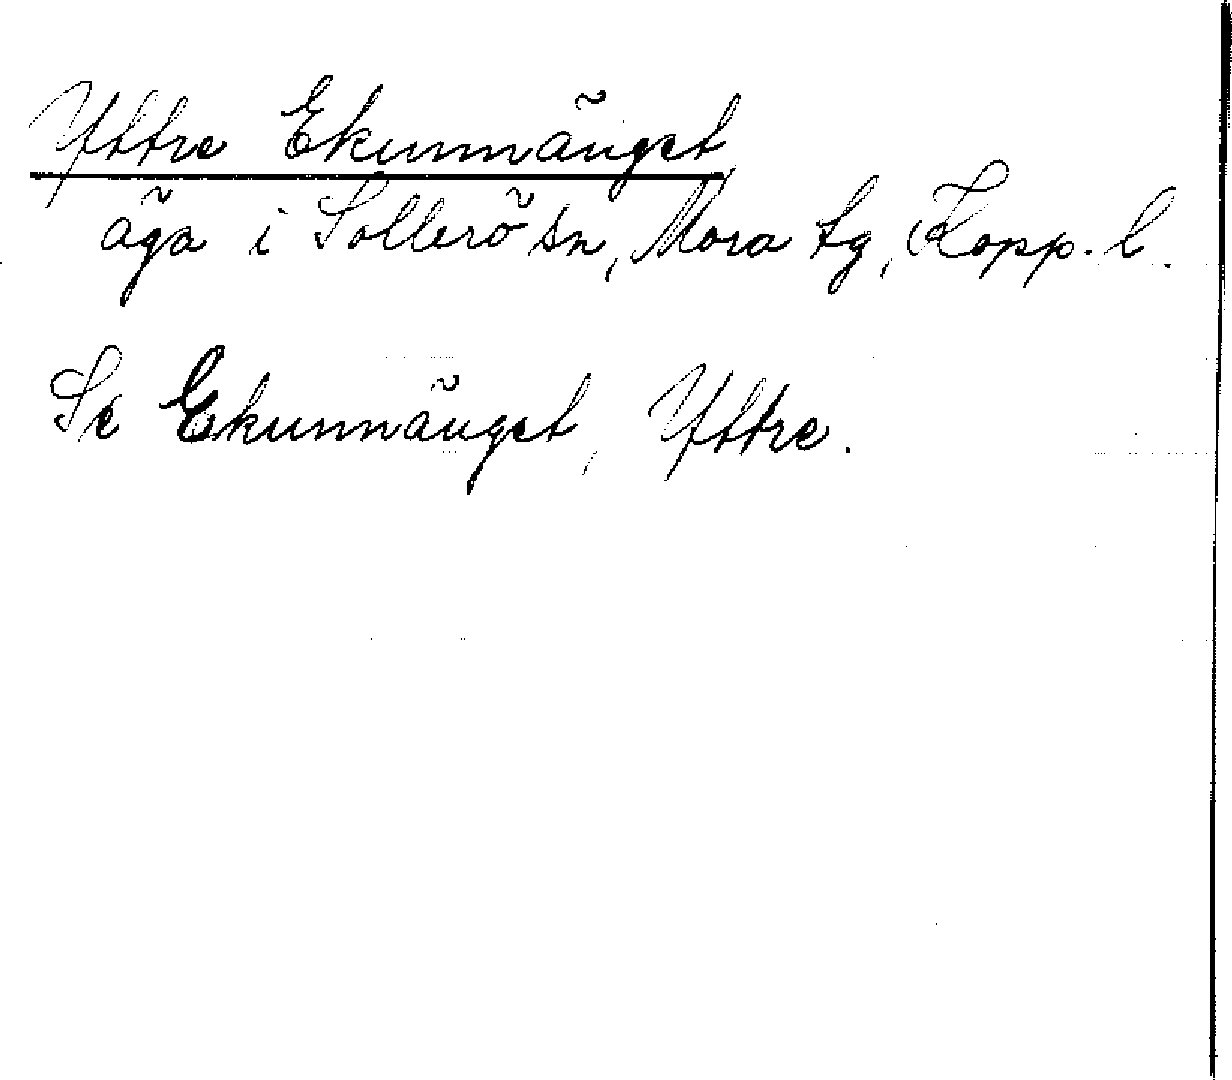 Yttre Ekunnänget
äga i Sollerö sn, Mora tg, Kopp. l.
Se Ekunnänget, Yttre.